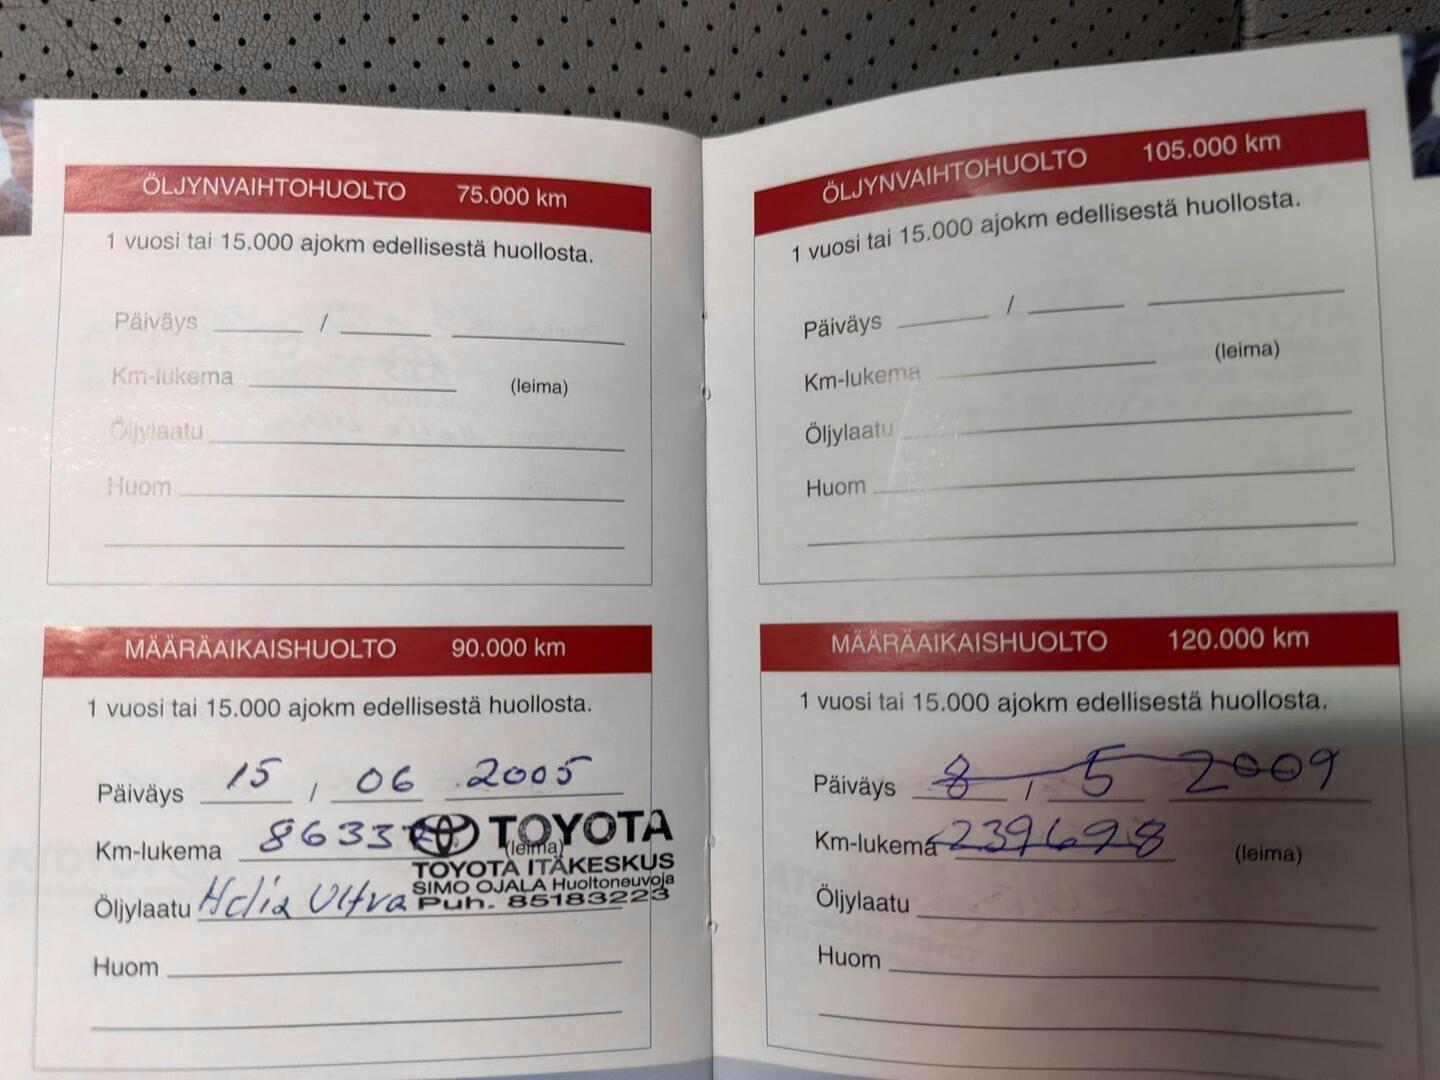 ÖLJYNVAIHTOHUOLTO 75.000 km
1 vuosi tai 15.000 ajokm edellisestä huollosta.
Päiväys /
Km-lukema (leima)
Öljylaatu
Huom
MÄÄRÄAIKAISHUOLTO 90.000 km
1 vuosi tai 15.000 ajokm edellisestä huollosta.
Päiväys 15 / 06 2005
Km-lukema (leima) TOYOTA
TOYOTA ITÄKESKUS
SIMO OJALA Huoltoneuvoja
Öljylaatu Helix Ultra Puh. 85183223
Huom
ÖLJYNVAIHTOHUOLTO 105.000 km
1 vuosi tai 15.000 ajokm edellisestä huollosta.
Päiväys /
Km-lukema (leima)
Öljylaatu
Huom
MÄÄRÄAIKAISHUOLTO 120.000 km
1 vuosi tai 15.000 ajokm edellisestä huollosta.
Päiväys 8 / 5 2009
Km-lukema 239698 (leima)
Öljylaatu
Huom